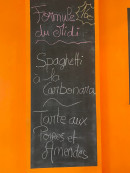 Formule
du Midi
Spaghetti
à la
Carbonara
Tarte aux
Poires et
Amandes